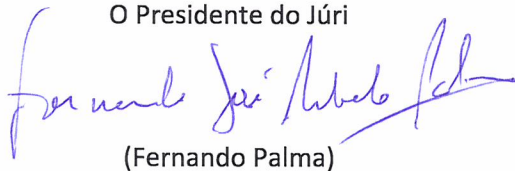 O Presidente do Júri
Fernando José Rebelo Palma
(Fernando Palma)